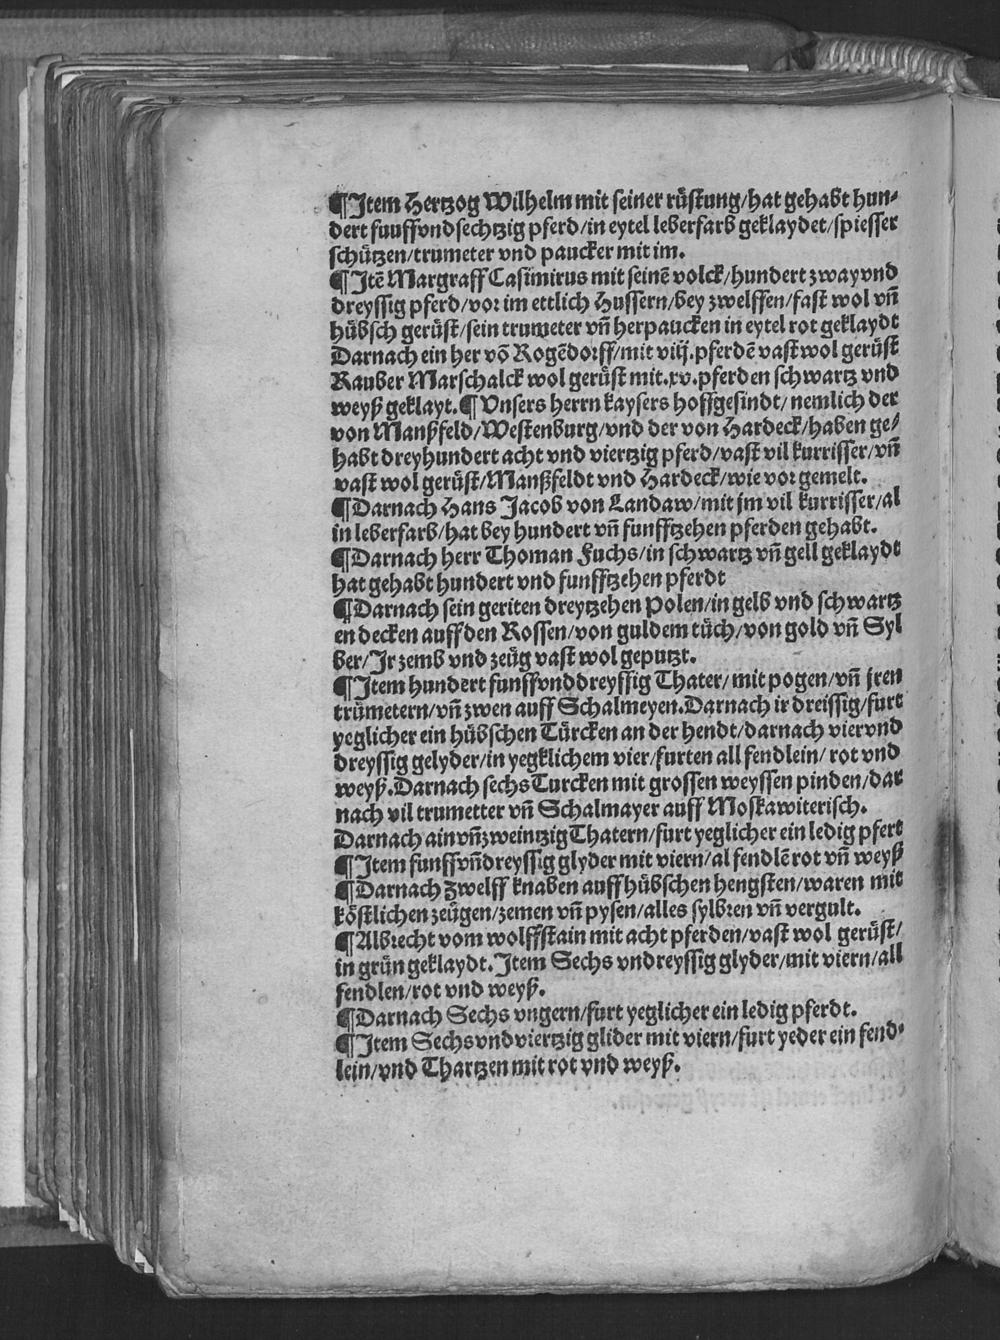 ¶Jtem Hertzog Wilhelm mit seiner rüstung/hat gehabt hun-
dert fuuffvndsechtzig pferd/in eytel leberfarb geklaydet/spiesser
schützen/trumeter vnd paucker mit im.
¶Jtē Margraff Casimirus mit seinē volck/hundert zwayvnd
dreyssig pferd/vor im ettlich Hussern/bey zwelffen/fast wol vñ
hübsch gerüst/sein trumeter vñ herpaucken in eytel rot geklaydt
Darnach ein her vō Rogēdorff/mit viij.pferdē vast wol gerüst
Rauber Marschalck wol gerüst mit.xv.pferden schwartz vnd
weyß geklayt.¶Vnsers herrn kaysers hoffgesindt/nemlich der
von Manßfeld/Westenburg/vnd der von Hardeck/haben ge-
habt dreyhundert acht vnd viertzig pferd/vast vil kurrisser/vñ
vast wol gerüst/Manßfeldt vnd Hardeck/wie vor gemelt.
¶Darnach Hans Jacob von Landaw/mit jm vil kurrisser/al
in leberfarb/hat bey hundert vñ funfftzehen pferden gehabt.
¶Darnach herr Thoman Fuchs/in schwartz vñ gell geklaydt
hat gehabt hundert vnd funfftzehen pferdt
¶Darnach sein geriten dreytzehen Polen/in gelb vnd schwartz
en decken auff den Rossen/von guldem tüch/von gold vñ Syl
ber/Jr zemb vnd zeüg vast wol geputzt.
¶Jtem hundert funffvnddreyssig Thater/mit pogen/vñ jren
trümetern/vñ zwen auff Schalmeyen.Darnach ir dreissig/furt
yeglicher ein hübschen Türcken an der hendt/darnach viervnd
dreyssig gelyder/in yegklichem vier/furten all fendlein/rot vnd
weyß.Darnach sechs Turcken mit grossen weyssen pinden/dar
nach vil trumetter vñ Schalmayer auff Moskawiterisch.
Darnach ainvñzweintzig Thatern/furt yeglicher ein ledig pfert
¶Jtem funffvñdreyssig glyder mit viern/al fendlē rot vñ weyß
¶Darnach Zwelff knaben auff hübschen hengsten/waren mit
köstlichen zeügen/zemen vñ pysen/alles sylbren vñ vergult.
¶Albrecht vom wolffstain mit acht pferden/vast wol gerüst/
in grün geklaydt.Jtem Sechs vndreyssig glyder/mit viern/all
fendlen/rot vnd weyß.
¶Darnach Sechs vngern/furt yeglicher ein ledig pferdt.
¶Jtem Sechsvndviertzig glider mit viern/furt yeder ein fend-
lein/vnd Thartzen mit rot vnd weyß.